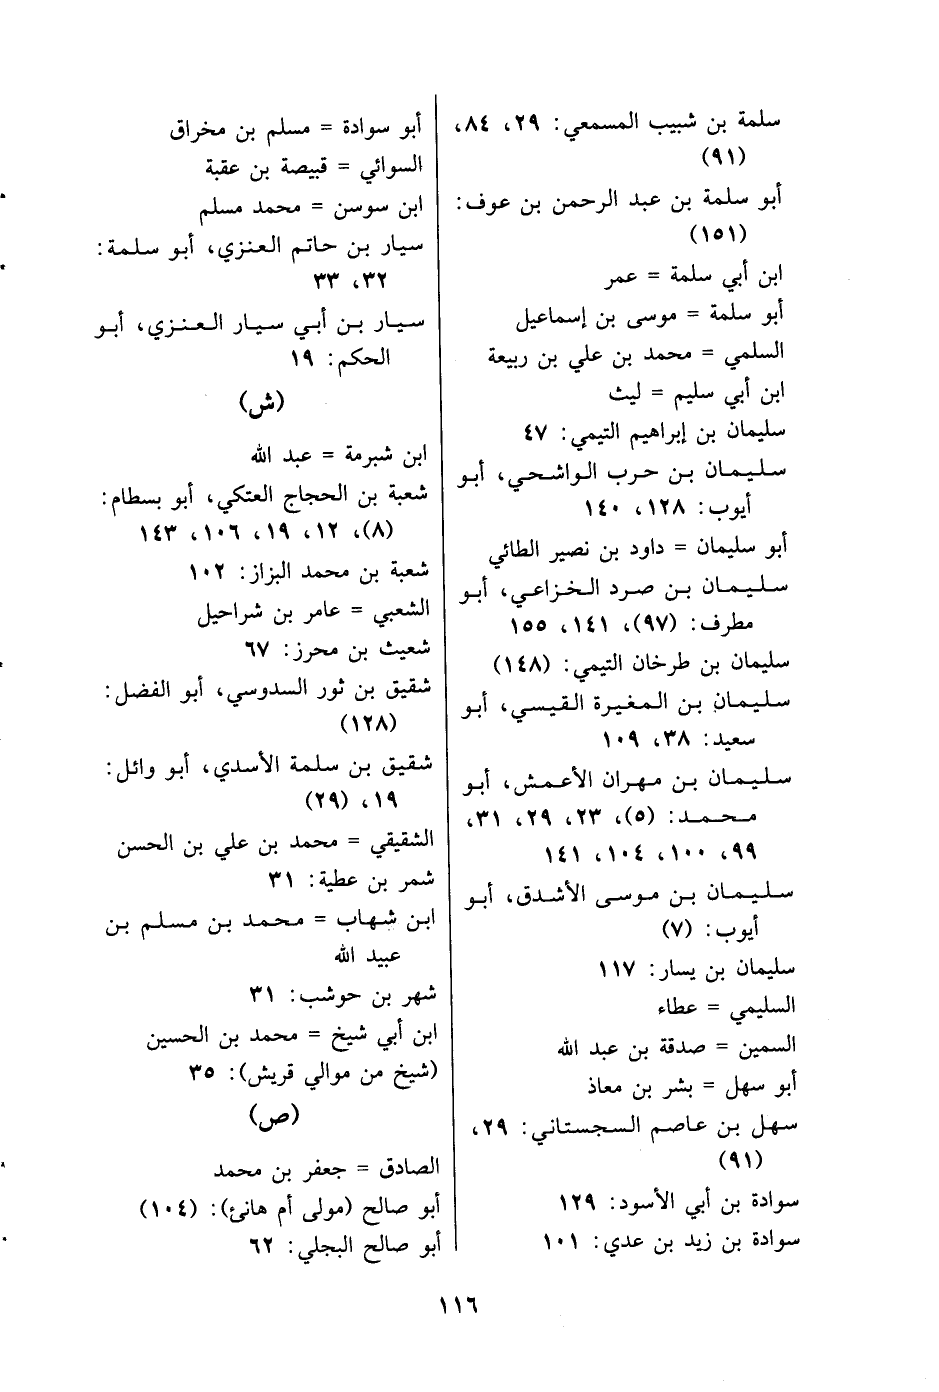 سلمة بن شبيب المسمعي: ٢٩، ٨٤،
(٩١)
أبو سلمة بن عبد الرحمن بن عوف:
(١٥١)
ابن أبي سلمة = عمر
أبو سلمة = موسى بن إسماعيل
السلمي = محمد بن علي بن ربيعة
ابن أبي سليم = ليث
سليمان بن إبراهيم التيمي: ٤٧
سليمان بن حرب الواشحي، أبو
أيوب: ١٢٨، ١٤٠
أبو سليمان = داود بن نصير الطائي
سليمان بن صرد الخزاعي، أبو
مطرف: (٩٧)، ١٤١، ١٥٥
سليمان بن طرخان التيمي: (١٤٨)
سليمان بن المغيرة القيسي، أبو
سعيد: ٣٨، ١٠٩
سليمان بن مهران الأعمش، أبو
محمد: (٥)، ٢٣، ٢٩، ٣١،
٩٩، ١٠٠، ١٠٤، ١٤١
سليمان بن موسى الأشدق، أبو
أيوب: (٧)
سليمان بن يسار: ١١٧
السليمي = عطاء
السمين = صدقة بن عبد الله
أبو سهل = بشر بن معاذ
سهل بن عاصم السجستاني: ٢٩،
(٩١)
سوادة بن أبي الأسود: ١٢٩
سوادة بن زيد بن عدي: ١٠١
أبو سوادة = مسلم بن مخراق
السوائي = قبيصة بن عقبة
ابن سوسن = محمد مسلم
سيار بن حاتم العنزي، أبو سلمة:
٣٢، ٣٣
سيار بن أبي سيار العنزي، أبو
الحكم: ١٩
(ش)
ابن شبرمة = عبد الله
شعبة بن الحجاج العتكي، أبو بسطام:
(٨)، ١٢، ١٩، ١٠٦، ١٤٣
شعبة بن محمد البزاز: ١٠٢
الشعبي = عامر بن شراحيل
شعيث بن محرز: ٦٧
شقيق بن ثور السدوسي، أبو الفضل:
(١٢٨)
شقيق بن سلمة الأسدي، أبو وائل:
١٩، (٢٩)
الشقيقي = محمد بن علي بن الحسن
شمر بن عطية: ٣١
ابن شهاب = محمد بن مسلم بن
عبيد الله
شهر بن حوشب: ٣١
ابن أبي شيخ = محمد بن الحسين
(شيخ من موالي قريش): ٣٥
(ص)
الصادق = جعفر بن محمد
أبو صالح (مولى أم هانئ): (١٠٤)
أبو صالح البجلي: ٦٢
١١٦